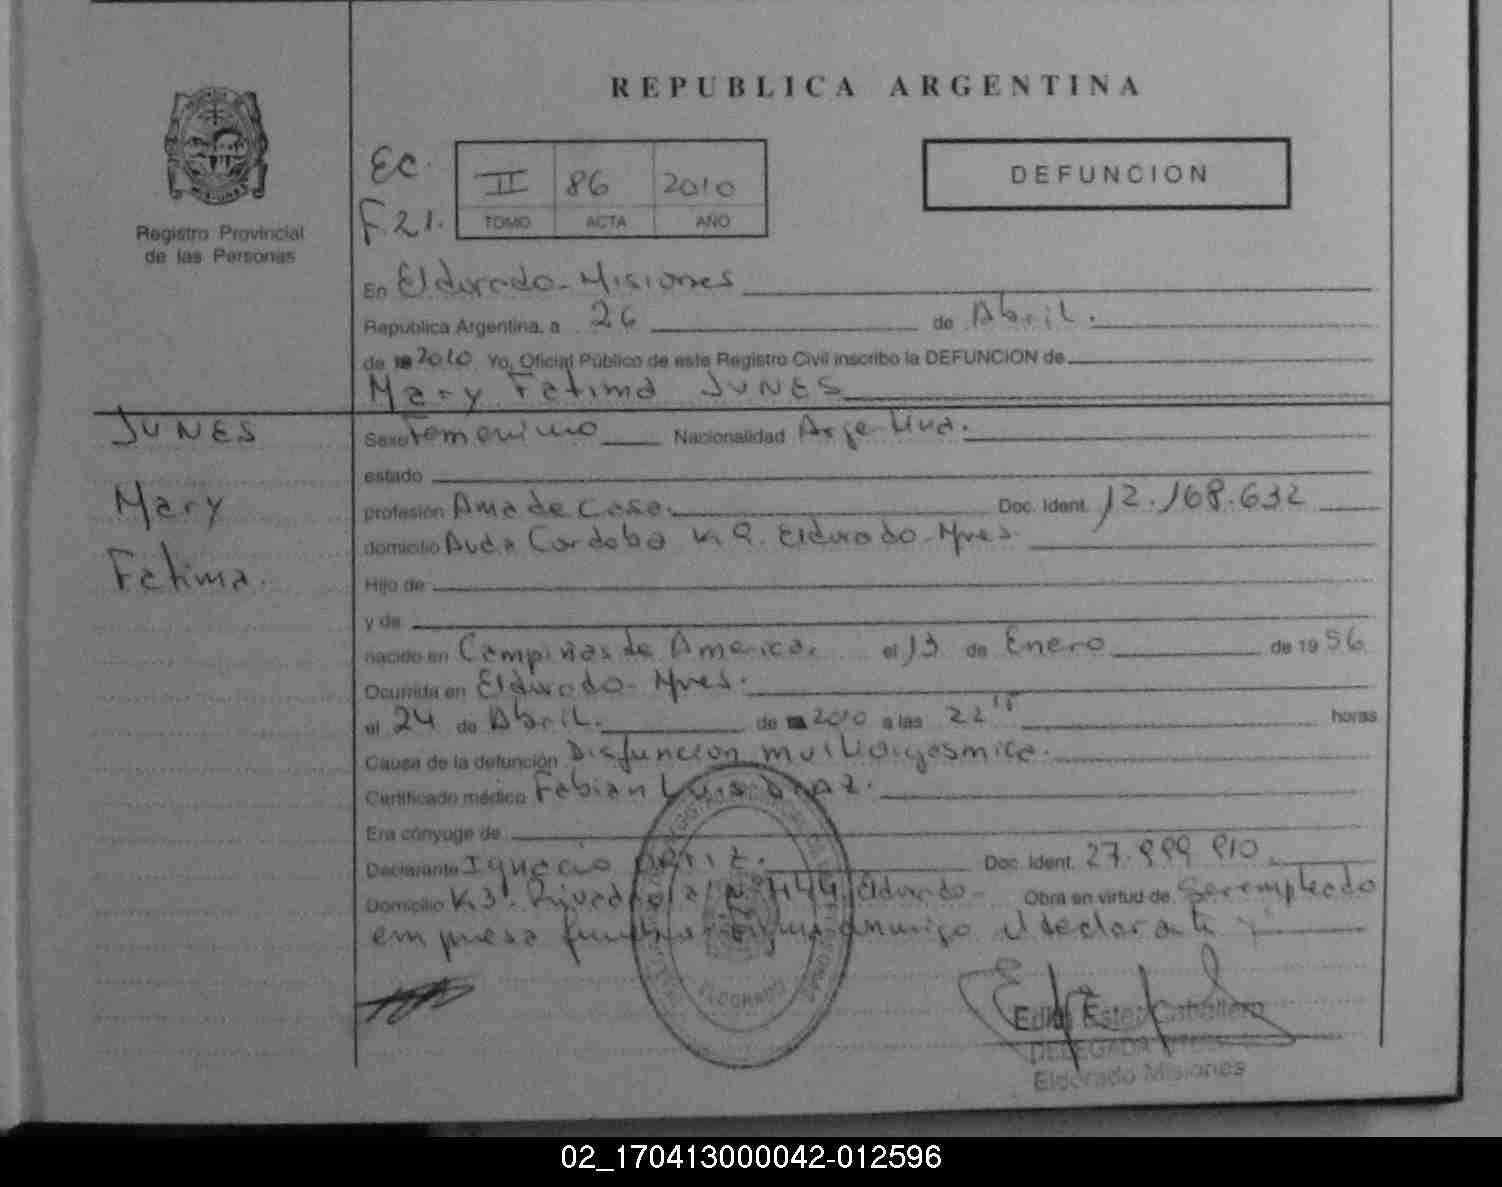 REPUBLICA ARGENTINA
Registro Provincial
de las Personas
EC.
F21.
II 86 2010
TOMO ACTA AÑO
DEFUNCION
En Eldorado - Misiones
Republica Argentina, a 26 de Abril.
de 2010 Yo, Oficial Público de este Registro Civil inscribo la DEFUNCION de
Mary Fatima JUNES
JUNES
Mary
Fatima.
Sexo Femenino Nacionalidad Argentina.
estado
profesión Ama de Casa. Doc. Ident. 12.168.632
domicilio Avda Cordoba K 9. Eldorado - Mnes.
Hijo de
y de
nacido en Campiñas de America. el 13 de Enero de 1956
Ocurrida en Eldorado - Mnes.
el 24 de Abril. de 2010 a las 22 horas
Causa de la defunción Disfuncion
Certificado médico Fabian Luis
Era cónyuge de
Declarante Ignacio Doc. Ident. 27.999.910
Domicilio K.3. Eldorado - Obra en virtud de Ser empleado
empresa conmigo el declarante
ELDORADO
Ester Caballero
DELEGADA
Eldorado Misiones
02_170413000042-012596